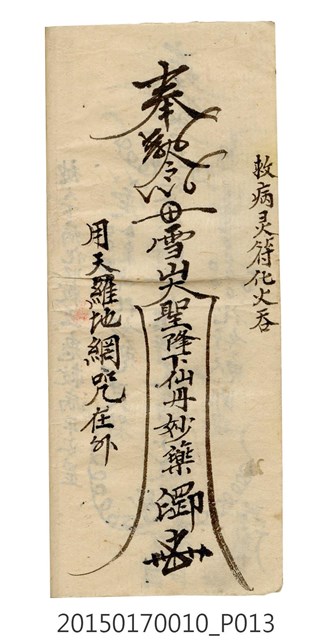 救病灵符化火吞
奉勅令
雪山聖降下仙丹妙藥
用天羅地網咒在外
20150170010_P013